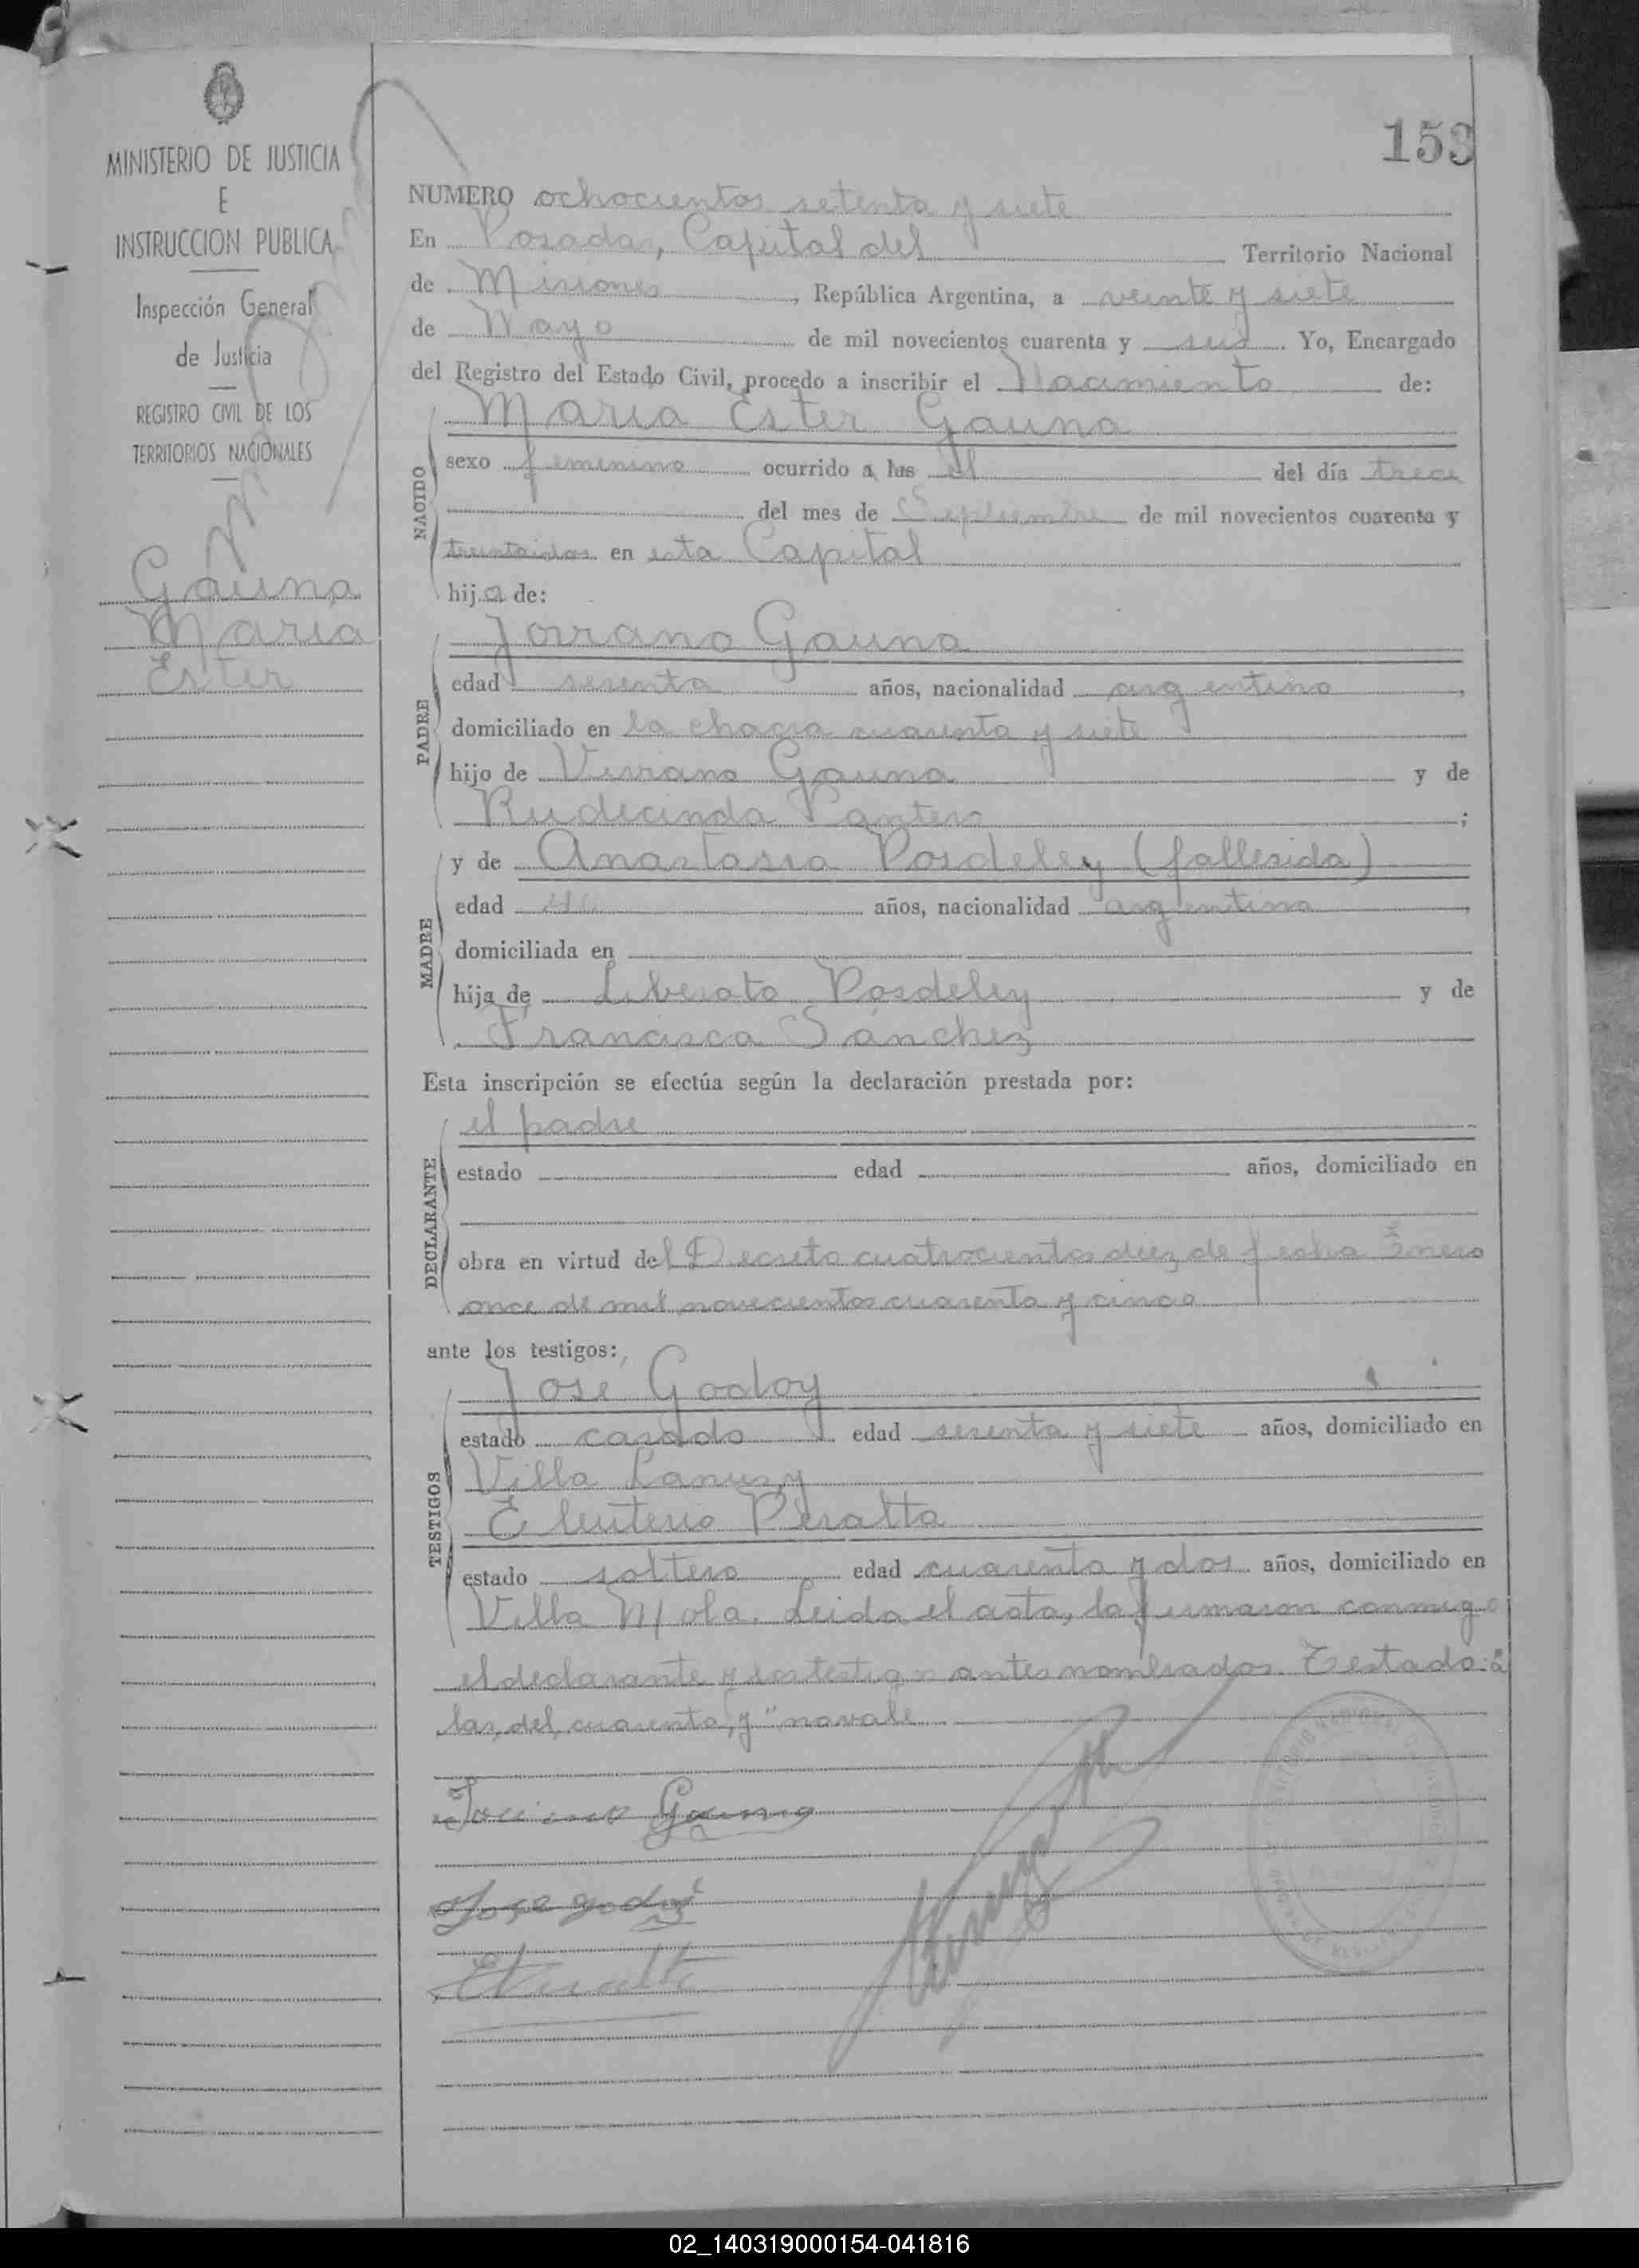 MINISTERIO DE JUSTICIA
E
INSTRUCCION PUBLICA
Inspección General
de Justicia
REGISTRO CIVIL DE LOS
TERRITORIOS NACIONALES
Gauna
Maria
Ester
153
NUMERO ochocientos setenta y siete
En Posadas, Capital del Territorio Nacional
de Misiones, República Argentina, a veinte y siete
de Mayo de mil novecientos cuarenta y seis. Yo, Encargado
del Registro del Estado Civil, procedo a inscribir el Nacimiento de:
NACIDO
Maria Ester Gauna
sexo femenino ocurrido a las el del día trece
del mes de Septiembre de mil novecientos cuarenta y
treintaidos en esta Capital
hija de:
PADRE
Gauna
edad sesenta años, nacionalidad argentino,
domiciliado en la chacra cuarenta y siete
hijo de Gauna y de
Rudecinda;
MADRE
y de Anastasia Posdeley (fallesida)
edad años, nacionalidad argentina,
domiciliada en
hija de Liberato Posdeley y de
Francisca Sánchez
Esta inscripción se efectúa según la declaración prestada por:
DECLARANTE
el padre
estado edad años, domiciliado en
obra en virtud del Decreto cuatrocientos diez de fecha Enero
once de mil novecientos cuarenta y cinco
ante los testigos:
TESTIGOS
José Godoy
estado casado edad sesenta y siete años, domiciliado en
Villa Lanus, y
Eleuterio Peralta
estado soltero edad cuarenta y dos años, domiciliado en
Villa Mola. Leida el acta, la firmaron conmigo
el declarante y los testigos antes nombrados. Testado: a
las, del, cuarenta, y "no vale
Gauna
Jose godoy
EPeralta
02_140319000154-041816